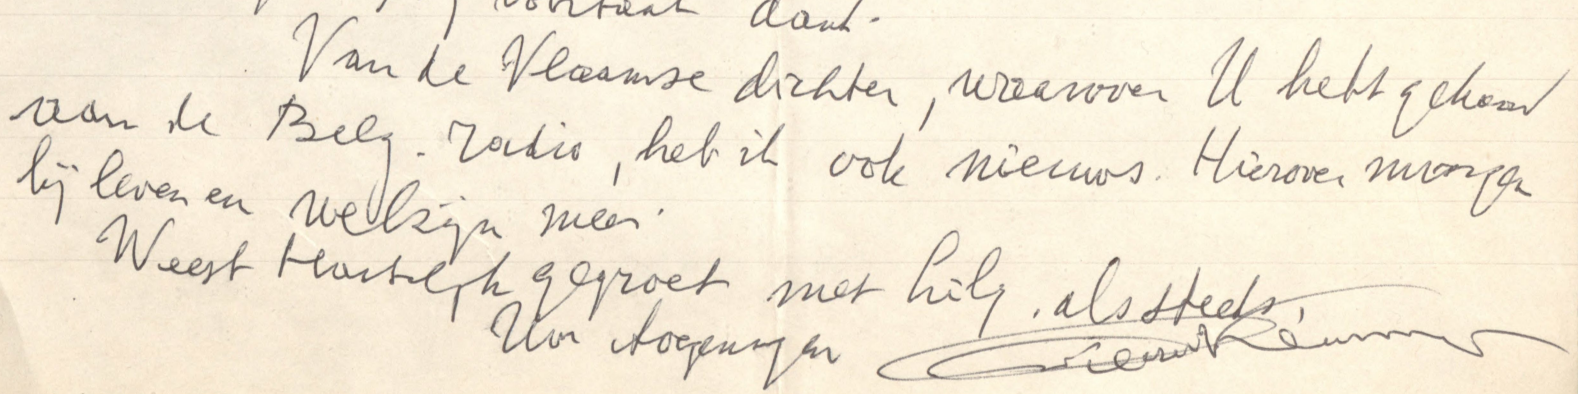 voortaan dank.
Van de Vlaamse dichter, waarover U hebt gehoord
aan de Belg. radio, heb ik ook nieuws. Hierover morgen
bij leven en welzijn meer.
Weest hartelijk gegroet met hilg. als steeds,
Uw toegenegen